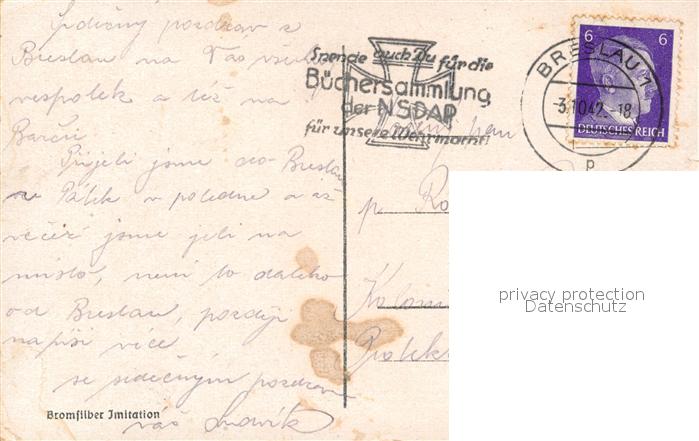 Srdečný pozdrav z
Breslau na Vás všech
vespolek a též na
Přijeli jsme do Breslau
v Pátek v poledne a až
večír jsme jeli na
místo, není to daleko
od Breslau, pozděj
napíši více
se srdečným pozdravem
váš Ludvík
Bromsilber Imitation
Spende auch Du für die
Büchersammlung
der NSDAP
für unsere Wehrmacht!
BRESLAU 1
-3.10.42.-18
p
6 6
DEUTSCHES REICH
pan
p.
privacy protection
Datenschutz